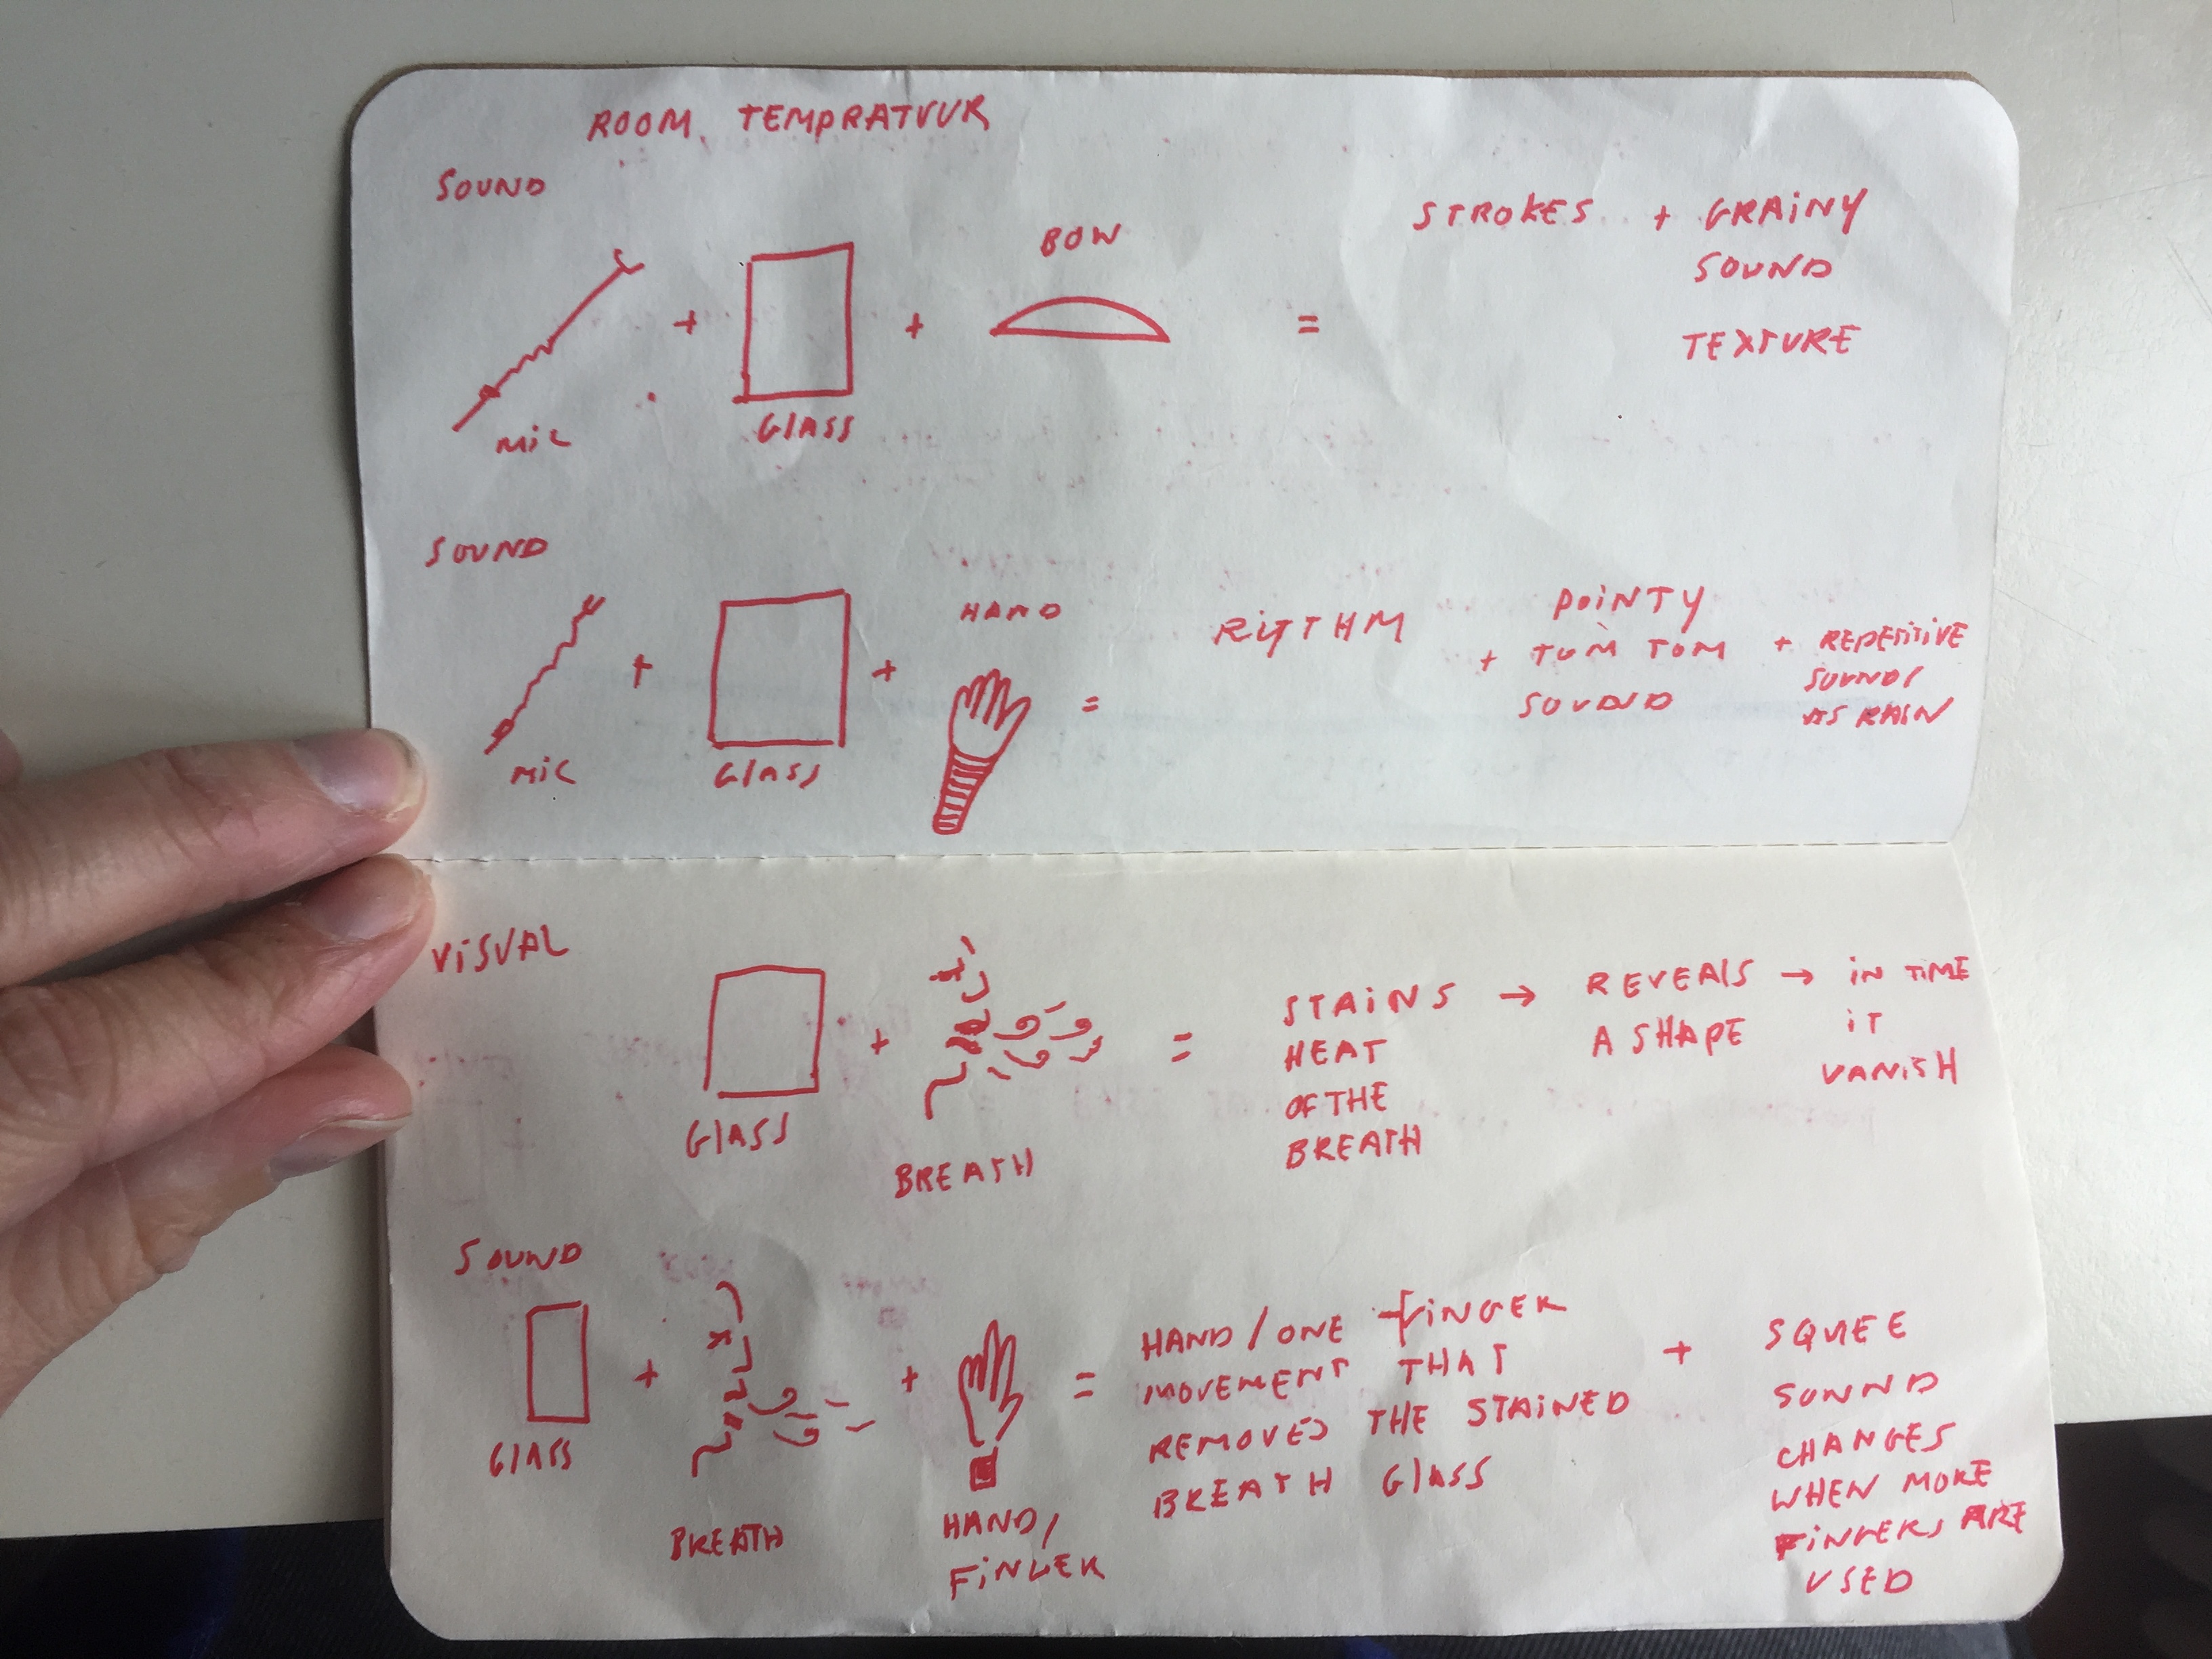 ROOM. TEMPRATUUR
SOUND
MIC
+
GLASS
+
BOW
=
STROKES + GRAINY
SOUND
TEXTURE
SOUND
MIC
+
GLASS
+
HAND
=
RITTHM
+
POINTY
TOM TOM
SOUND
+ REPETITIVE
SOUND/
AS RAIN
VISUAL
GLASS
+
BREATH
=
STAINS
HEAT
OF THE
BREATH
→
REVEALS
A SHAPE
→
IN TIME
IT
VANISH
SOUND
GLASS
+
BREATH
+
HAND/
FINGER
=
HAND/ONE FINGER
MOVEMENT THAT
REMOVES THE STAINED
BREATH GLASS
+
SQUEE
SOUND
CHANGES
WHEN MORE
FINGERS ARE
USED